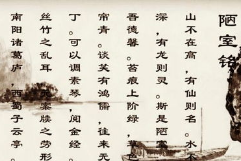 陋室铭
山不在高,有仙则名。水不
深,有龙则灵。斯是陋
吾德馨。苔痕上阶绿,草
帘青。谈笑有鸿儒,往来无
丁。可以调素琴,阅金经
丝竹之乱耳 案牍之劳形
南阳诸葛庐,西蜀子云亭。